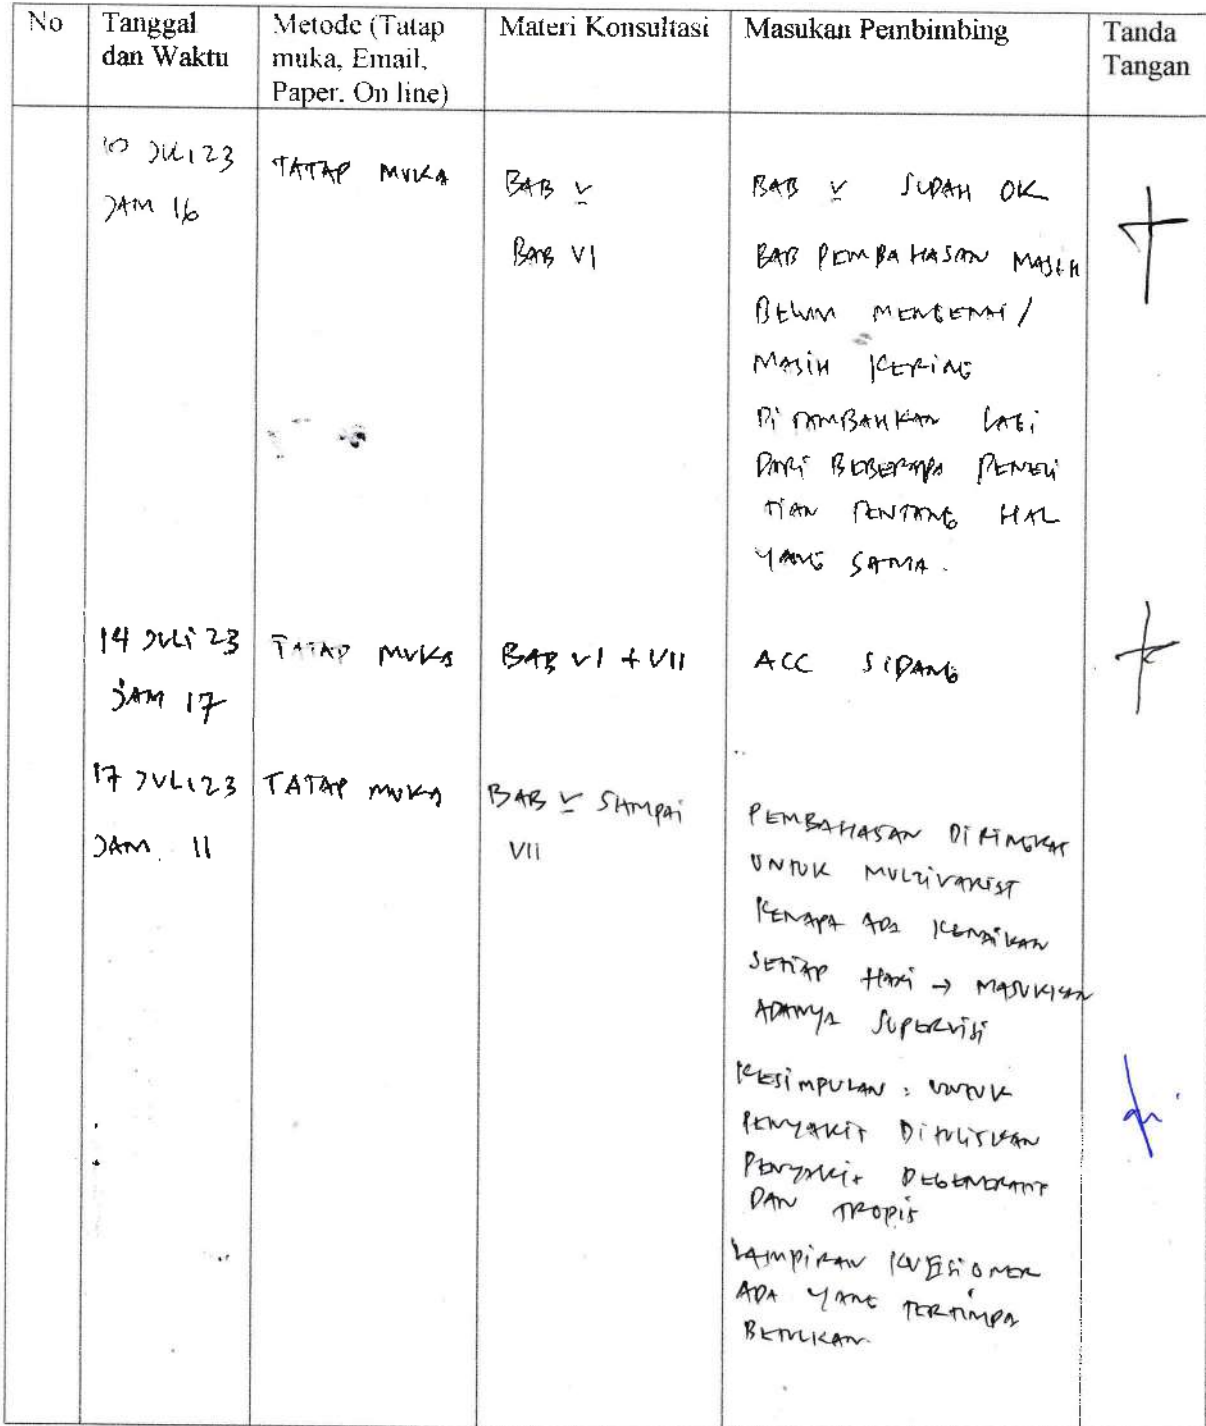 No
Tanggal
dan Waktu
Metode (Tatap
muka, Email,
Paper. On line)
Materi Konsultasi
Masukan Pembimbing
Tanda
Tangan
10 JULI 23
JAM 16
TATAP MUKA
BAB V
BAB VI
BAB V SUDAH OK
BAB PEMBAHASAN MASIH
BELUM MENGENAI /
MASIH KERING
DITAMBAHKAN LAGI
DARI BEBERAPA PENELI
TIAN TENTANG HAL
YANG SAMA.
14 JULI 23
JAM 17
TATAP MUKA
BAB VI + VII
ACC SIDANG
17 JULI 23
JAM 11
TATAP MUKA
BAB V SAMPAI
VII
PEMBAHASAN DIRINGKAS
UNTUK MULTIVARIAT
KENAPA ADA KENAIKAN
SETIAP HARI → MASUKKAN
ADANYA SUPERVISI
KESIMPULAN : UNTUK
PENYAKIT DITULISKAN
PENYAKIT DEGENERATIF
DAN TROPIS
LAMPIRAN KUESIONER
ADA YANG TERTIMPA
BETULKAN